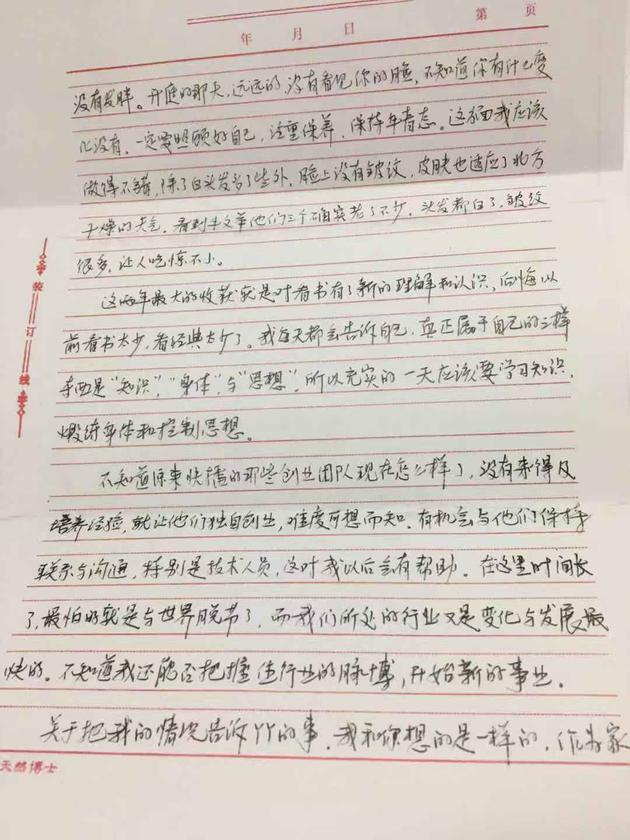 年 月 日 第 页
没有发胖。开庭的那天,远远的,没有看见你的脸,不知道你有什么变
化没有,一定要照顾好自己,注重保养,保持年青态。这方面我应该
做得不错,除了白头发多了些外,脸上没有皱纹,皮肤也适应了北方
干燥的天气,看到牛文举他们三个确实老了不少,头发都白了,皱纹
很多,让人吃惊不小。
这两年最大的收获就是对看书有了新的理解和认识,后悔以
前看书太少,看经典太少了。我每天都会告诉自己,真正属于自己的三样
东西是“知识”,“身体”与“思想”,所以充实的一天应该要学习知识,
煅练身体和控制思想。
不知道原来快播的那些创业团队现在怎么样了,没有来得及
培养经验,就让他们独自创业,难度可想而知,有机会与他们保持
联系与沟通,特别是技术人员,这对我以后会有帮助。在这里时间长
了,最怕的就是与世界脱节了,而我们所处的行业又是变化与发展最
快的。不知道我还能否把握住行业的脉搏,开始新的事业。
关于把我的情况告诉丫丫的事,我和你想的是一样的,作为家
装订线
天然博士